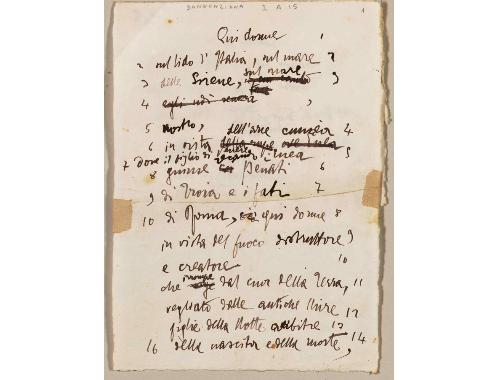 DANNUNZIANA 1 A 15 1
Qui donne 1
2 sul lido d'Italia, sul mare 2
sul mare
3 delle Sirene, 3
4 egli udì 4
5 nostro, dell'arce cumèa 4
6 in vista 5
7 dove il figlio di Enea
8 giunse Penati 6
9 di Troia e i fati 7
10 di Roma, qui donne 8
in vista del fuoco distruttore 9
e creatore 10
che irrompe dal cuor della Terra, 11
vegliato dalle antiche 12
figlie della Notte arbitre 13
16 della nascita e della morte, 14